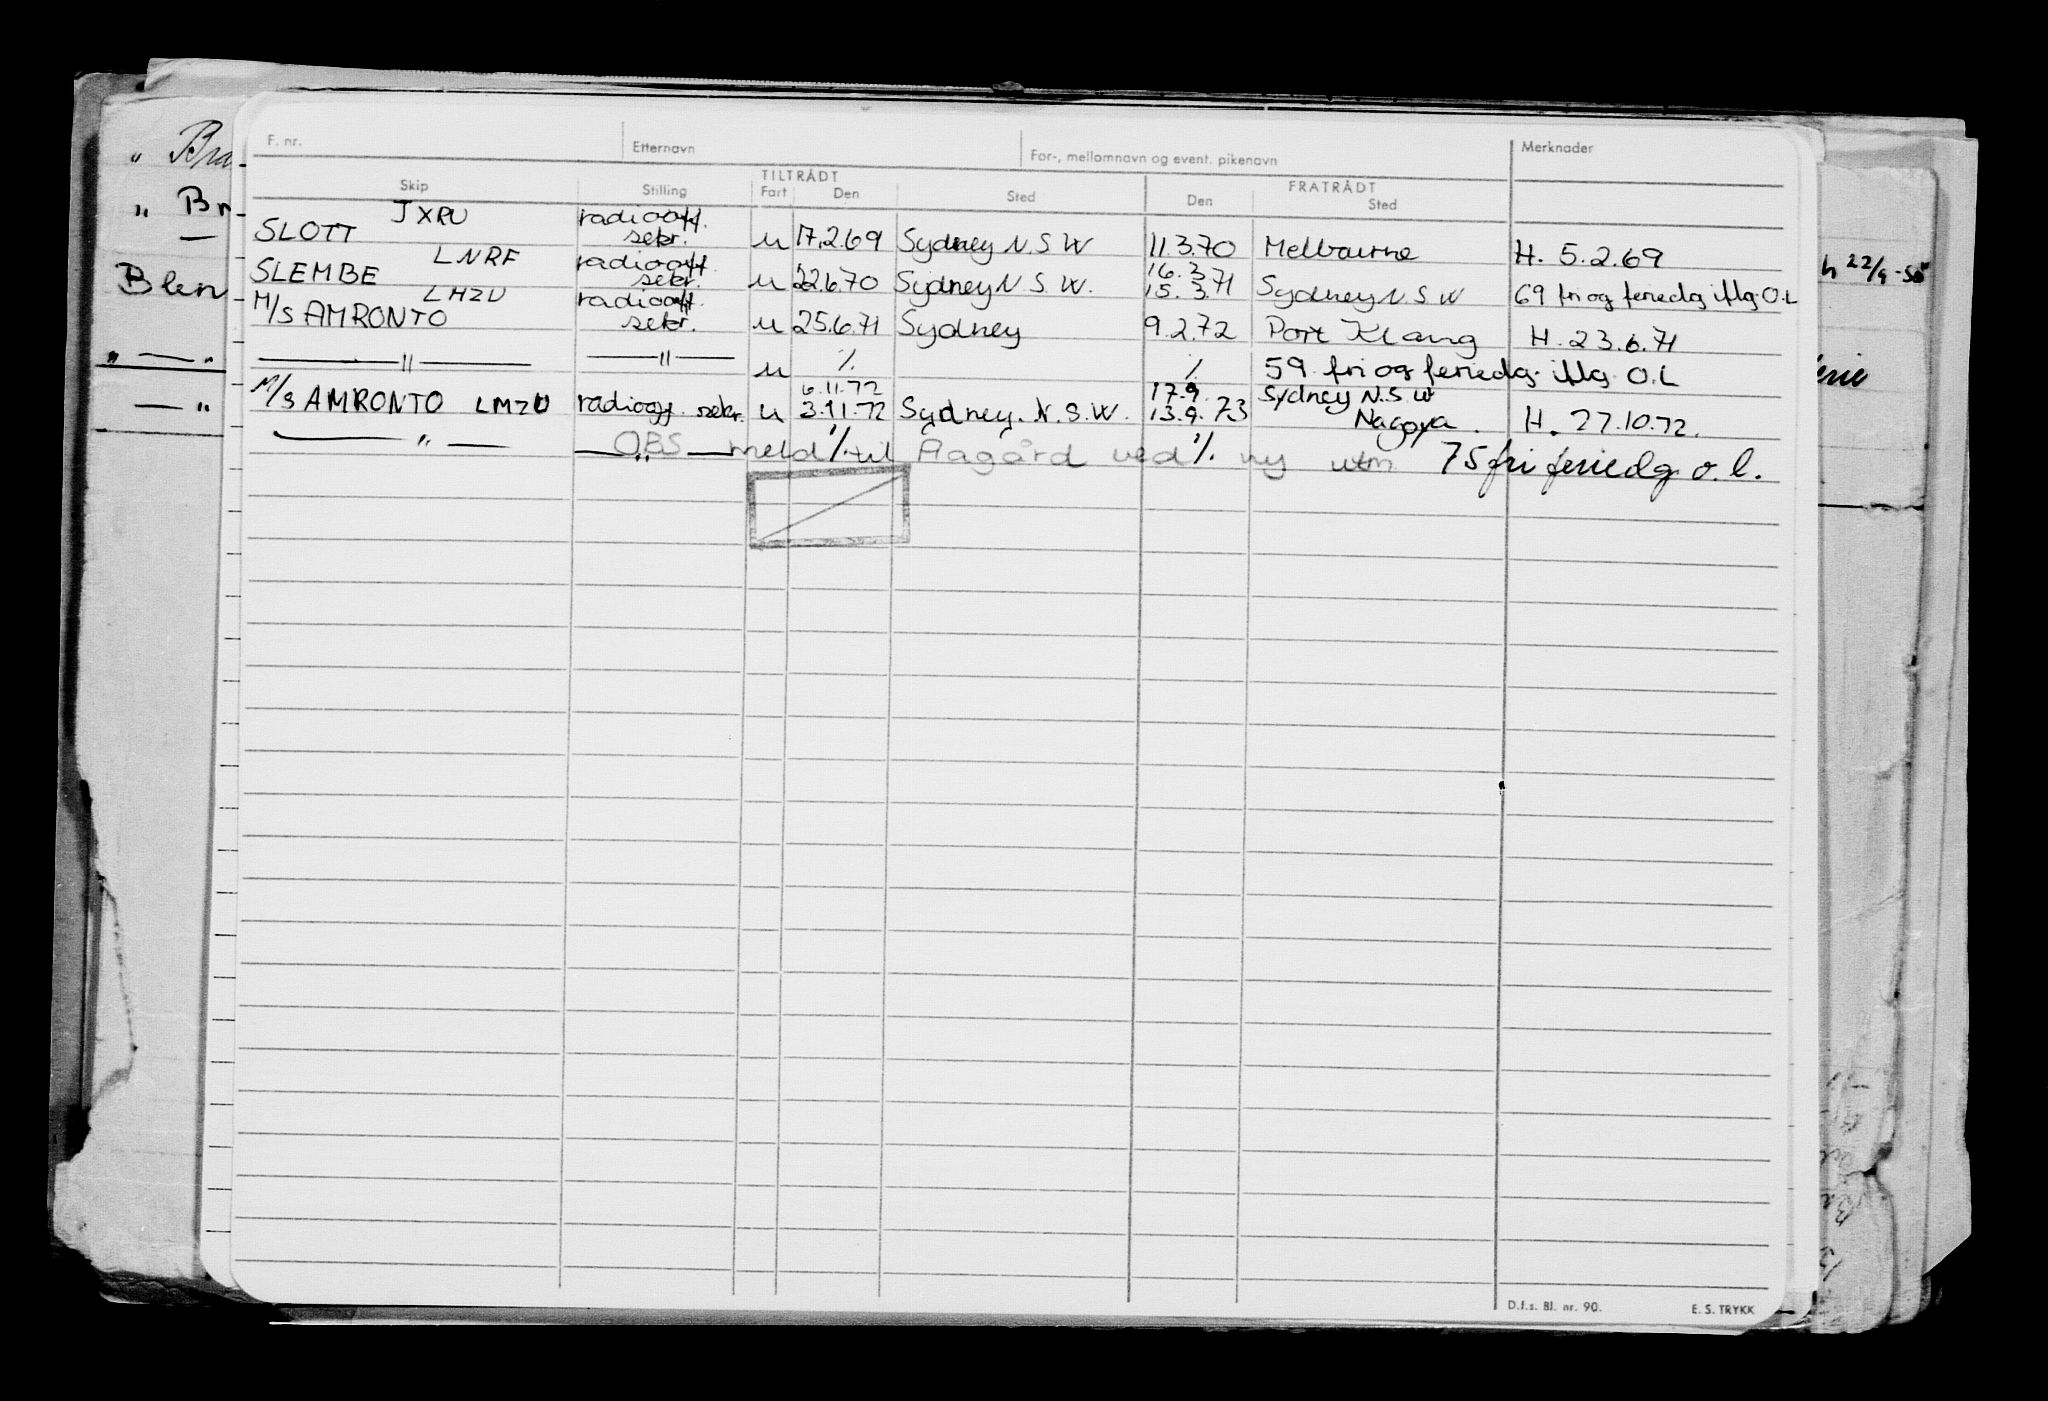 F. nr. Etternavn For-, mellomnavn og event. pikenavn Merknader
TILTRÅDT FRATRÅDT
Skip Stilling Fart Den Sted Den Sted
SLOTT JXRU radiooff. sekr. u 17.2.69 Sydney N.S.W 11.3.70 Melbourne H. 5.2.69
SLEMBE LNRF radiooff. sekr. u 22.6.70 Sydney N.S.W. 16.3 15.3.71 Sydney N.S.W 69 fri og feriedg iflg. O.L
M/S AMRONTO LMZU radiooff. sekr. u 25.6.71 Sydney 9.2.72 Port Klang H. 23.6.71
— " — — " — u ⁒ ⁒ 59 fri og feriedg. iflg. O.L
M/S AMRONTO LMZU radiooff. sekr. u 6.11.72 3.11.72 Sydney. N.S.W. 17.9. 13.9.73 Sydney N.S.W Nagoya. H. 27.10.72.
— " — — " — OBS meld til Aagård ved ny utm 75 fri feriedg o.l.
D.f.s. Bl. nr. 90. E. S. TRYKK
" Bra
" Br
Blen
h 22/9-50
erie